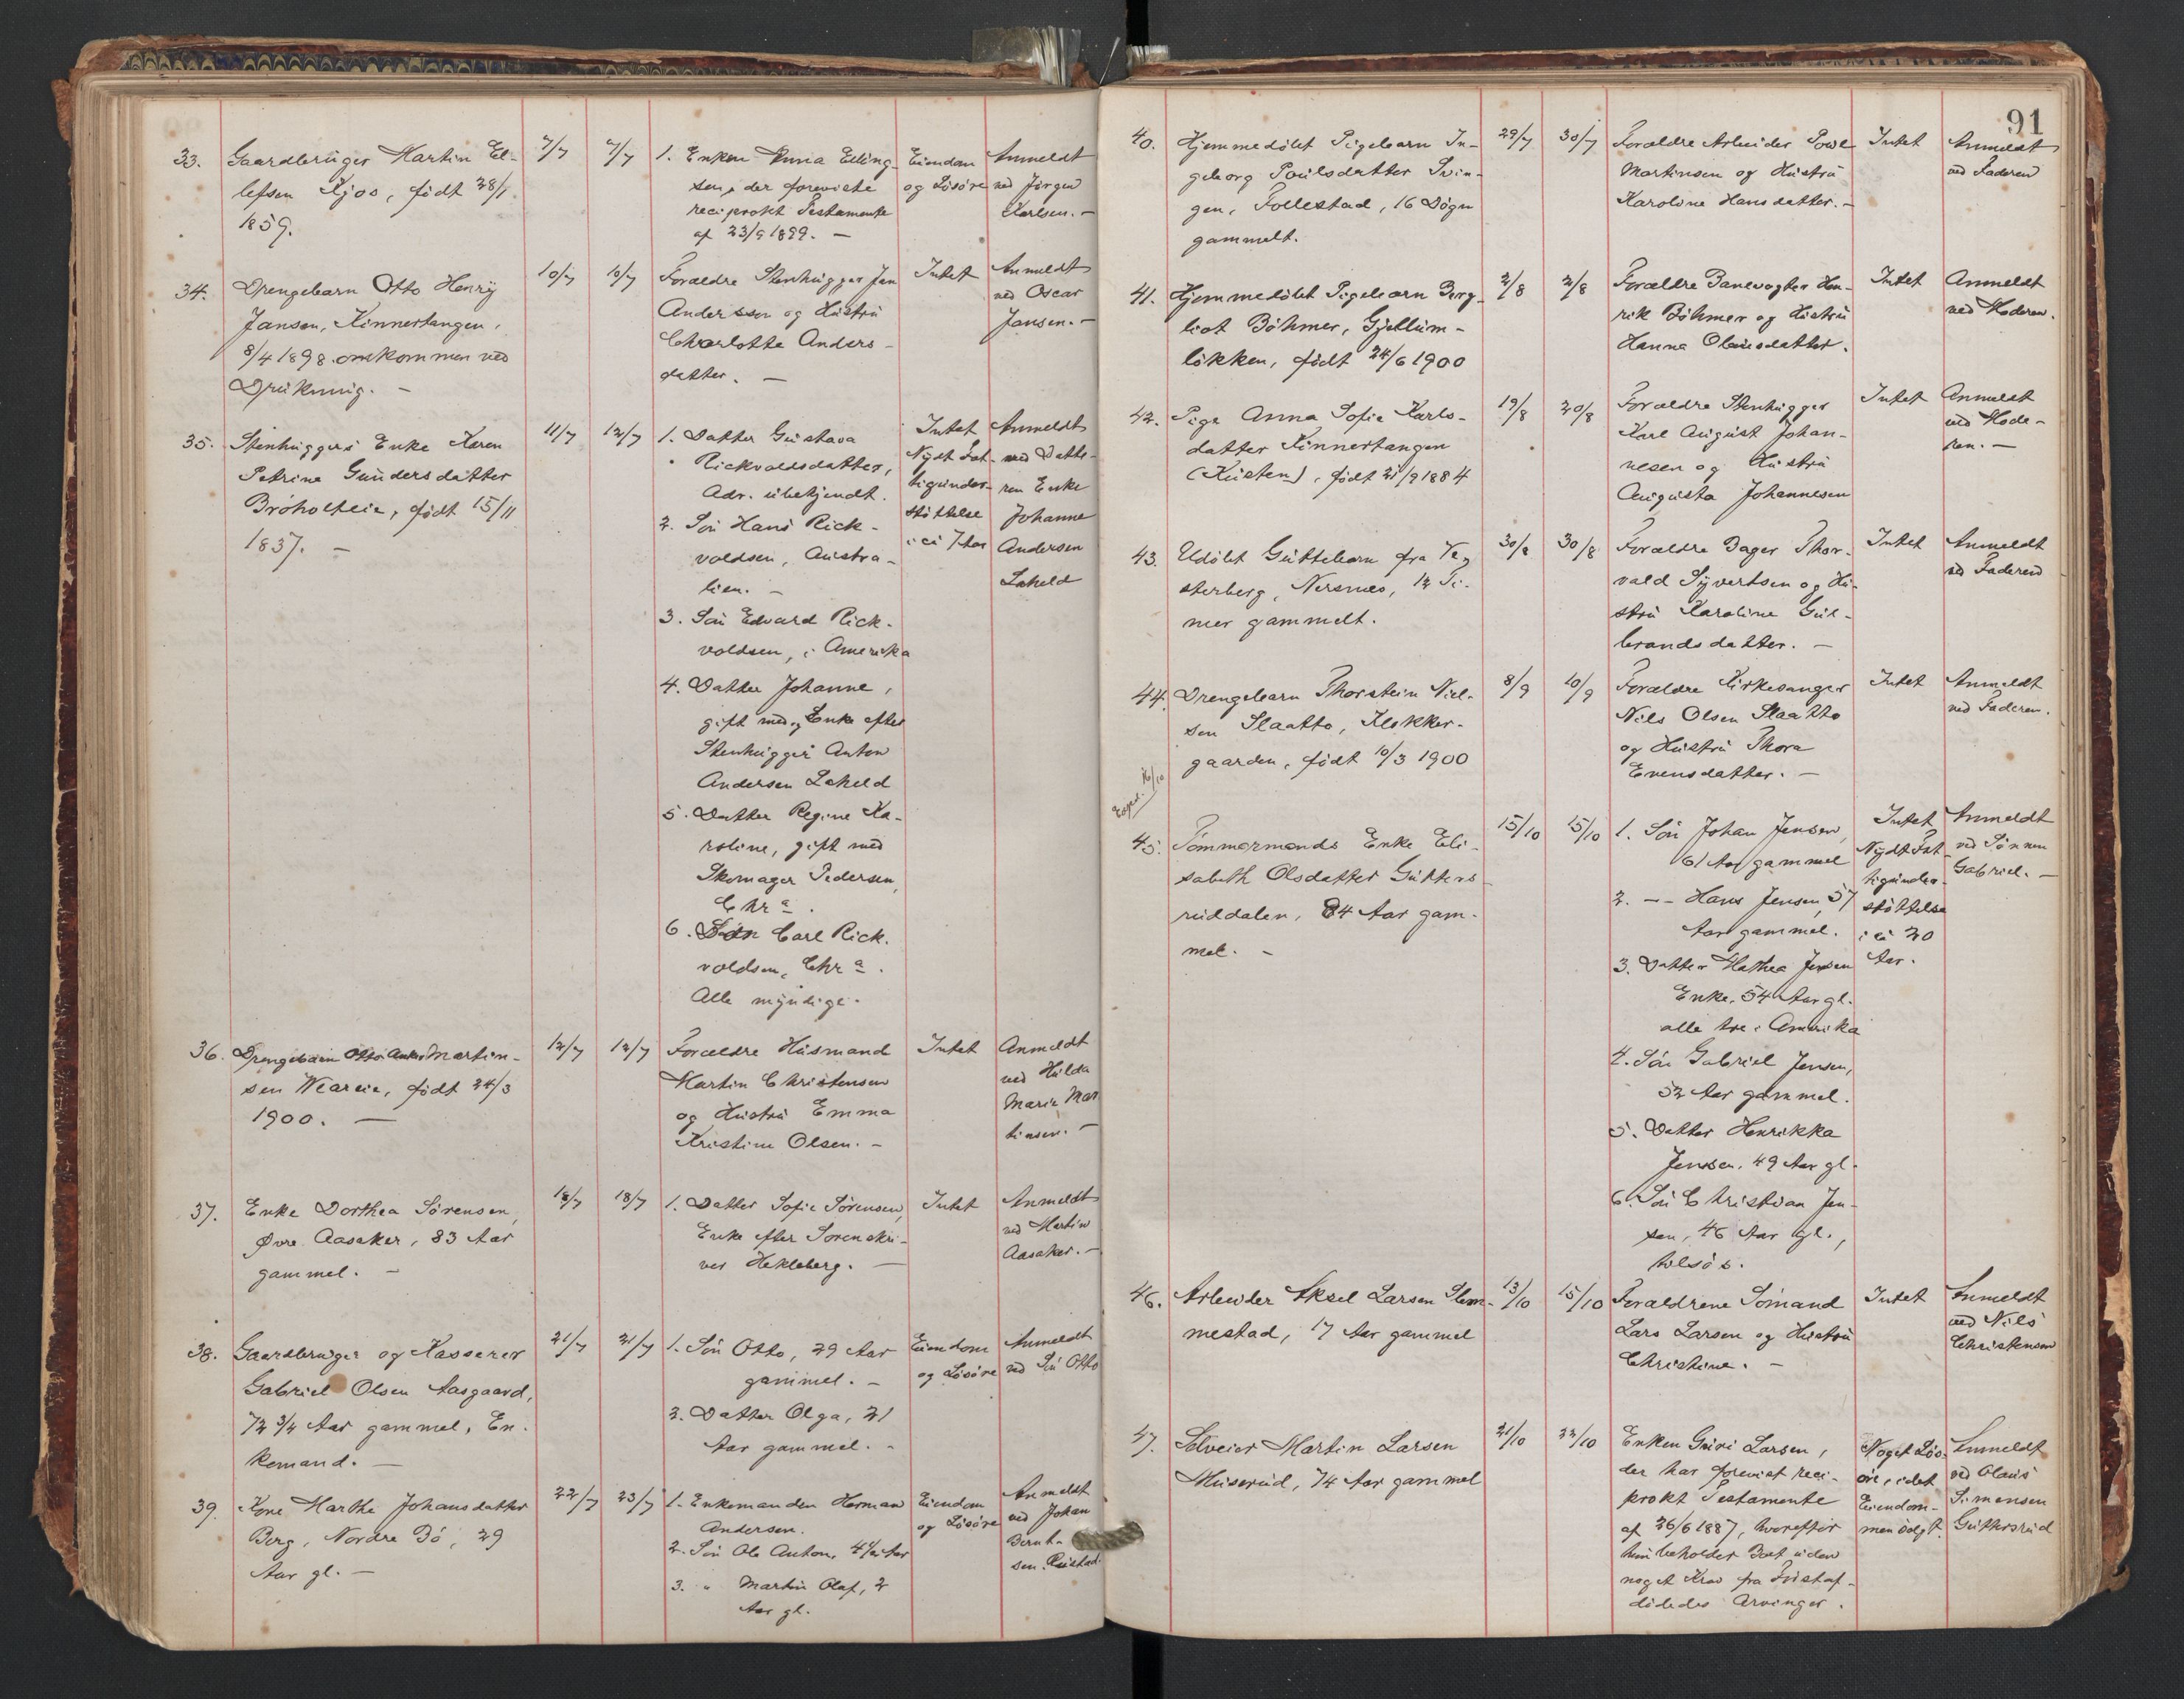 33.
Gaardbruger Martin El-
lefsen Kjos, født 28/1
1859.
7/7
7/7
1. Enken Anna Elling-
sen, der foreviste
reciprokt Testamente
af 23/9 1899. —
Eiendom
og Løsøre
Anmeldt
ved Jørgen
Karlsen. —
34.
Drengebarn Otto Henry
Jansen, Kinnertangen,
8/4 1898. omkommen ved
Drukning. —
10/7
10/7
Forældre Stenhugger Jan
Anderssen og Hustru
Charlotte Anders-
datter. —
Intet
Anmeldt
ved Oscar
Jansen. —
35.
Stenhuggers Enke Karen
Petrine Gundersdatter
Bröholteie, født 15/11
1837. —
11/7
12/7
1. Datter Gustava
Rickvoldsdatter,
Adr. ubekjendt.
2. Søn Hans Rick-
voldsen, Austra-
lien. —
3. Søn Edvard Rick-
voldsen, i Amerika
4. Datter Johanne,
gift med, Enke efter
Stenhugger Anton
Andersen Laheld
5. Datter Regine Ka-
roline, gift med
Skomager Pedersen,
Chra.
6. Søn Carl Rick-
voldsen, Chra.
Alle myndige.
Intet
Nydt Fat-
tigunder-
støttelse
i ci 7 Aar
Anmeldt
ved Datte-
ren Enke
Johanne
Andersen
Laheld
36.
Drengebarn Otto Anker Martin-
sen Weareie, født 24/3
1900. —
12/7
12/7
Forældre Husmand
Martin Christensen
og Hustru Emma
Kristine Olsen. —
Intet
Anmeldt
ved Hilda
Marie Mar
tinsen. —
37.
Enke Dorthea Sørensen,
Øvre Aasaker, 83 Aar
gammel. —
18/7
18/7
1. Datter Sofie Sørensen,
Enke efter Sorenskri-
ver Hekleberg. —
Intet
Anmeldt
ved Martin
Aasaker. —
38.
Gaardbruger og Kasserer
Gabriel Olsen Aasgaard,
72 3/4 Aar gammel, En-
kemand. —
21/7
21/7
1. Søn Otto, 29 Aar
gammel. —
2. Datter Olga, 21
Aar gammel. -
Eiendom
og Løsøre
Anmeldt
ved Søn Otto
39.
Kone Marthe Johansdatter
Berg, Nordre Bö, 29
Aar gl. —
22/7
23/7
1. Enkemanden Herman
Andersen.
2. Søn Ole Anton, 4 1/2 Aar
3. " Martin Olaf, 2
Aar gl.
Eiendom
og Løsøre
Anmeldt
ved Johan
Bernt-
sen Rustad.
91
40.
Hjemmedøbt Pigebarn In-
geborg Poulsdatter Svin-
gen, Follestad, 16 Døgn
gammelt.
29/7
30/7
Forældre Arbeider Powl
Martinsen og Hustru
Karoline Hansdatter. —
Intet
Anmeldt
ved Faderen
41.
Hjemmedøbt Pigebarn Berg-
liot Böhmer, Gjellum-
løkken, født 24/6 1900
2/8
2/8
Forældre Banevogter Hen-
rik Böhmer og Hustru
Hanna Olausdatter.
Intet
Anmeldt
ved Moderen.
42.
Pige Anna Sofie Karls-
datter Kinnertangen
(Kusten), født 21/9 1884
19/8
20/8
Forældre Stenhugger
Karl August Johan-
nesen og Hustru
Augusta Johannesen
Intet
Anmeldt
ved Mode-
ren. —
43.
Udöbt Guttebarn fra Ve-
sterberg, Nersnes, 12 Ti-
mer gammelt.
30/8
30/8
Forældre Bager Thor-
vald Syvertsen og Hu-
stru Karoline Gul-
brandsdatter. —
Intet
Anmeldt
ved Faderen
44.
Drengebarn Thorstein Niel-
sen Slaatto, Klokker-
gaarden, født 10/3 1900
8/9
10/9
Forældre Kirkesanger
Nils Olsen Slaatto
og Hustru Thora
Evensdatter. —
Intet
Anmeldt
ved Faderen.
Exped. 16/10
45.
Tömmermands Enke Eli-
sabeth Olsdatter Gutters-
ruddalen, 84 Aar gam-
mel. —
15/10
15/10
1. Søn Johan Jensen,
61 Aar gammel
2. -- Hans Jensen, 57
Aar gammel.
3. Datter Mathea Jensen
Enke, 54 Aar gl.
alle tre i Amerika
4. Søn Gabriel Jensen,
52 Aar gammel.
5. Datter Henrikka
Jensen, 49 Aar gl.
6. Søn Christian Jen-
sen, 46 Aar gl.,
tilsøs.
Intet
Nydt Fat-
tigunder-
støttelse
i ci 20
Aar.
Anmeldt
ved Sønnen
Gabriel. —
46.
Arbeider Aksel Larsen Slem-
mestad, 17 Aar gammel
13/10
15/10
Forældrene Sömand
Lars Larsen og Hustru
Christine. —
Intet
Anmeldt
ved Nils
Christensen
47.
Selveier Martin Larsen
Muserud, 74 Aar gammel
21/10
22/10
Enken Guri Larsen,
der har forevist reci-
prokt Testamente
af 26/6 1887, hvorefter
hun beholder Boet uden
noget Krav fra Førstaf-
dødedes Arvinger.
Noget Løs-
øre, idet
Eiendom-
men solgt.
Anmeldt
ved Olaus
Simensen
Guttersrud